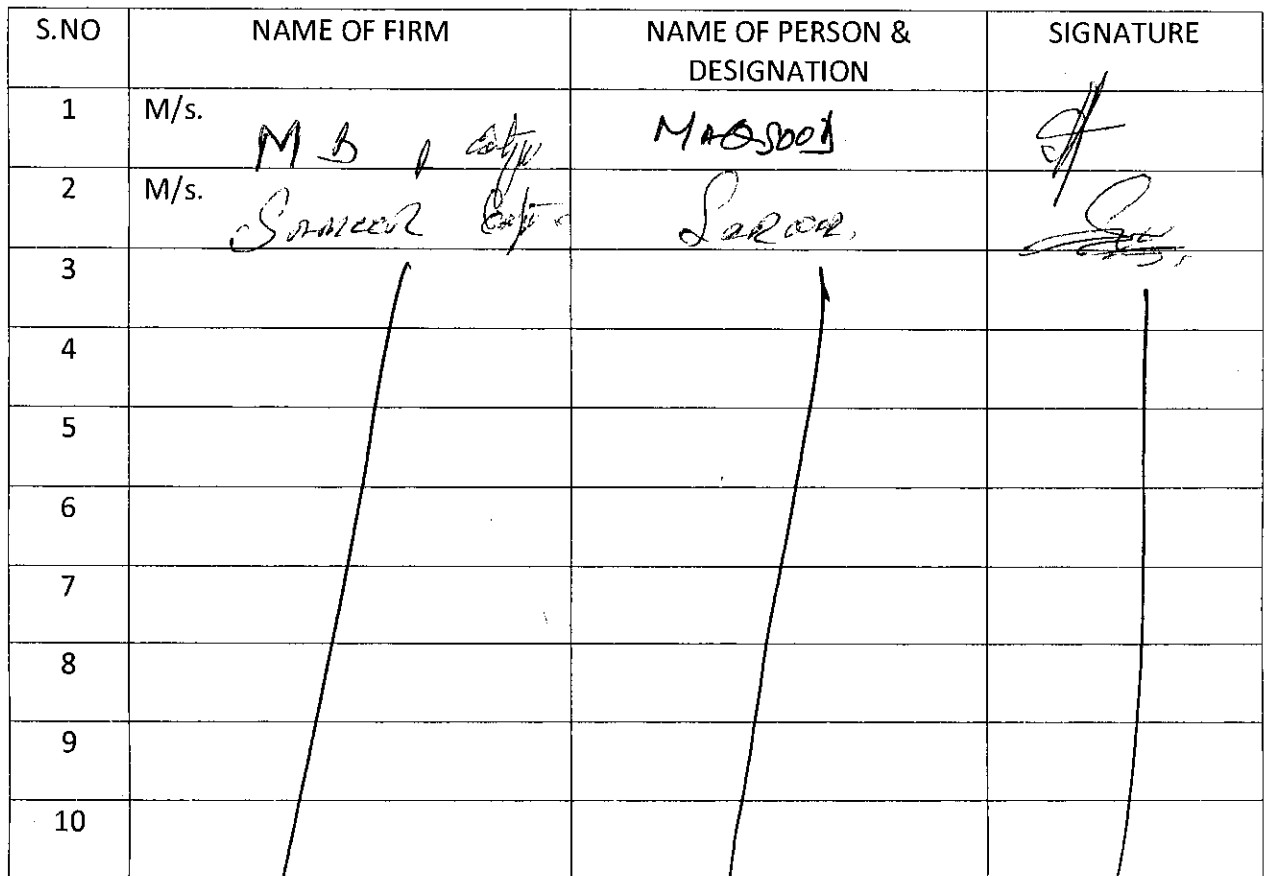 S.NO NAME OF FIRM NAME OF PERSON & DESIGNATION SIGNATURE
1 M/s. M B MAQSOOD
2 M/s.
3
4
5
6
7
8
9
10